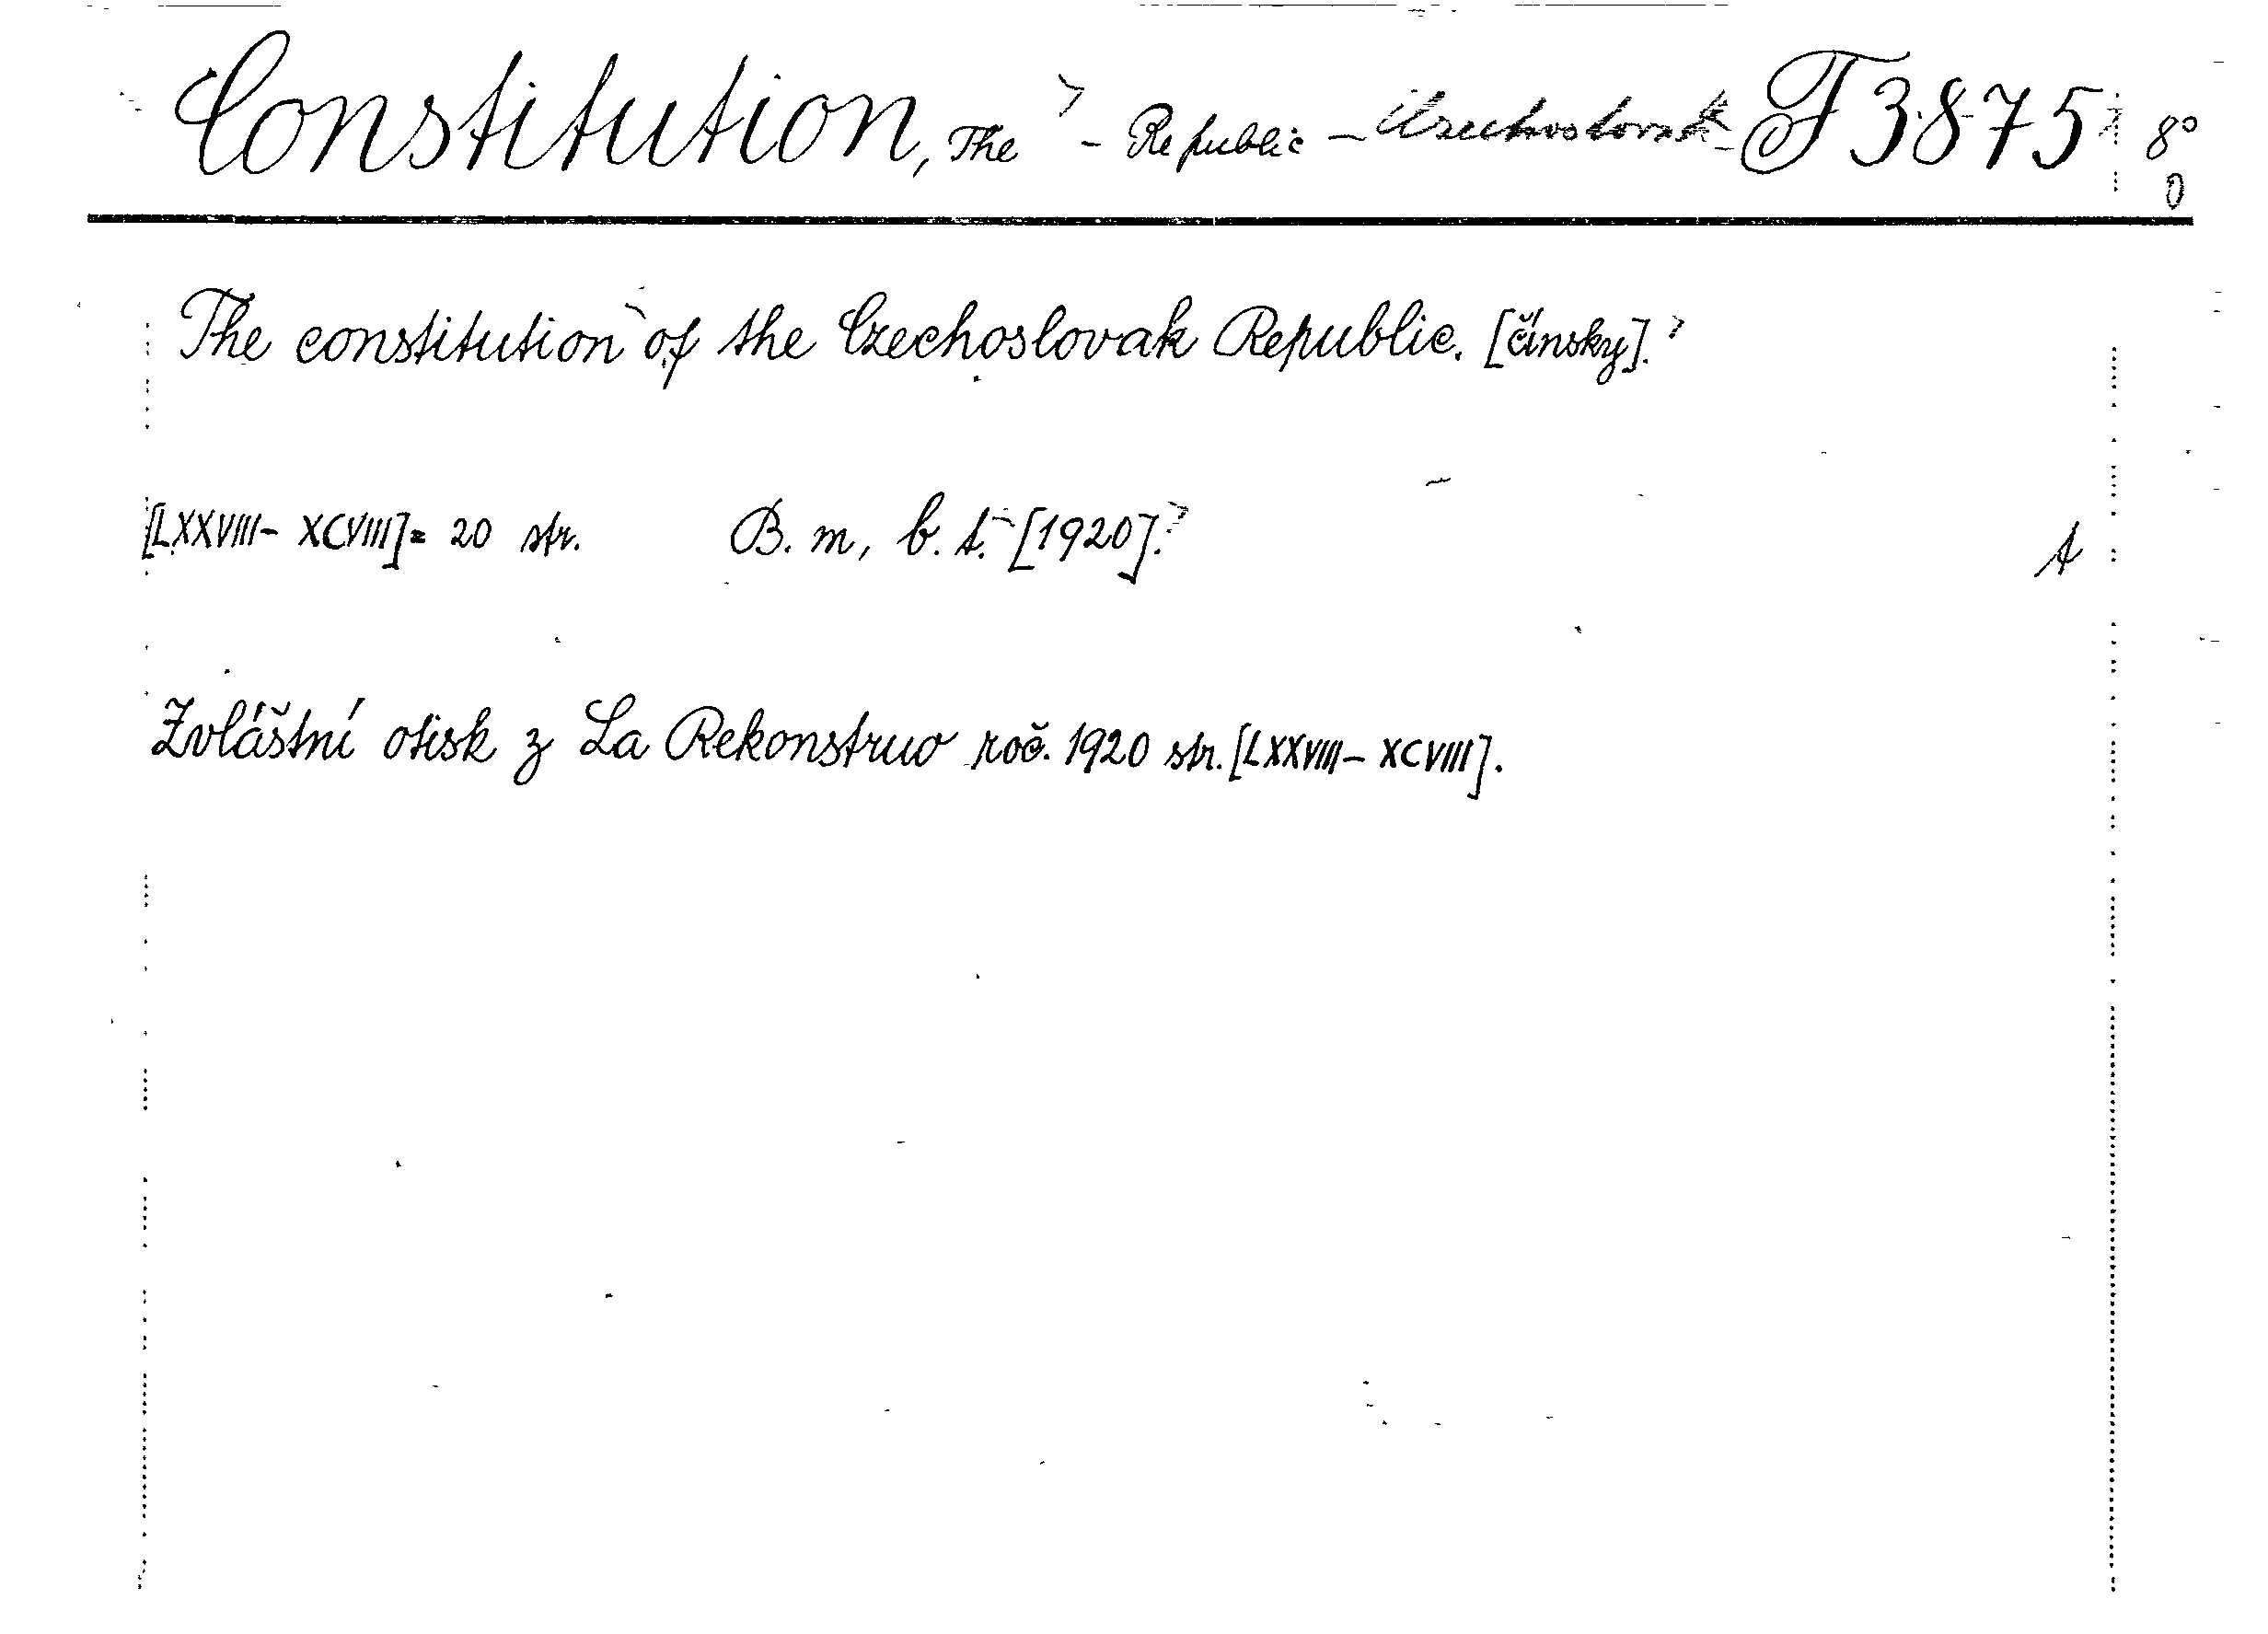 Constitution, The - Republic - Czechoslovak F 3875 8°
The constitution of the Czechoslovak Republic. [čínsky].
[LXXVIII- XCVIII]= 20 str. B. m, b. t. [1920].
Zvláštní otisk z La Rekonstruo roč. 1920 str. [LXXVIII- XCVIII].